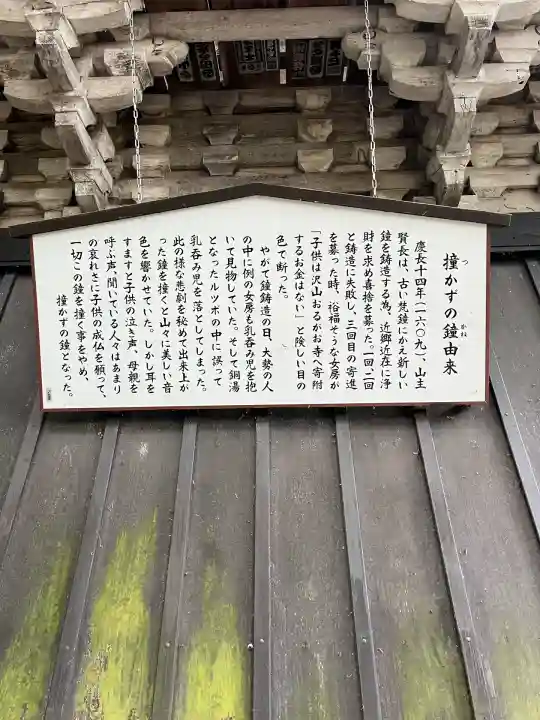 撞かずの鐘由来
つ
かね
慶長十四年(一六〇九)、山主
賢長は、古い梵鐘にかえ新しい
鐘を鋳造する為、近郷近在に浄
財を求め喜捨を募った。一回二回
と鋳造に失敗し、三回目の寄進
を募った時、裕福そうな女房が
「子供は沢山おるがお寺へ寄附
するお金はない」と険しい目の
色で断った。
やがて鐘鋳造の日、大勢の人
の中に例の女房も乳呑み児を抱
いて見物していた。そして銅湯
となったルツボの中に誤って
乳呑み児を落としてしまった。
此の様な悲劇を秘めて出来上が
った鐘を撞くと山々に美しい音
色を響かせていた。しかし耳を
すますと子供の泣き声、母親を
呼ぶ声、聞いている人々はあまり
の哀れさに子供の成仏を願って、
一切この鐘を撞く事をやめ、
撞かずの鐘となった。